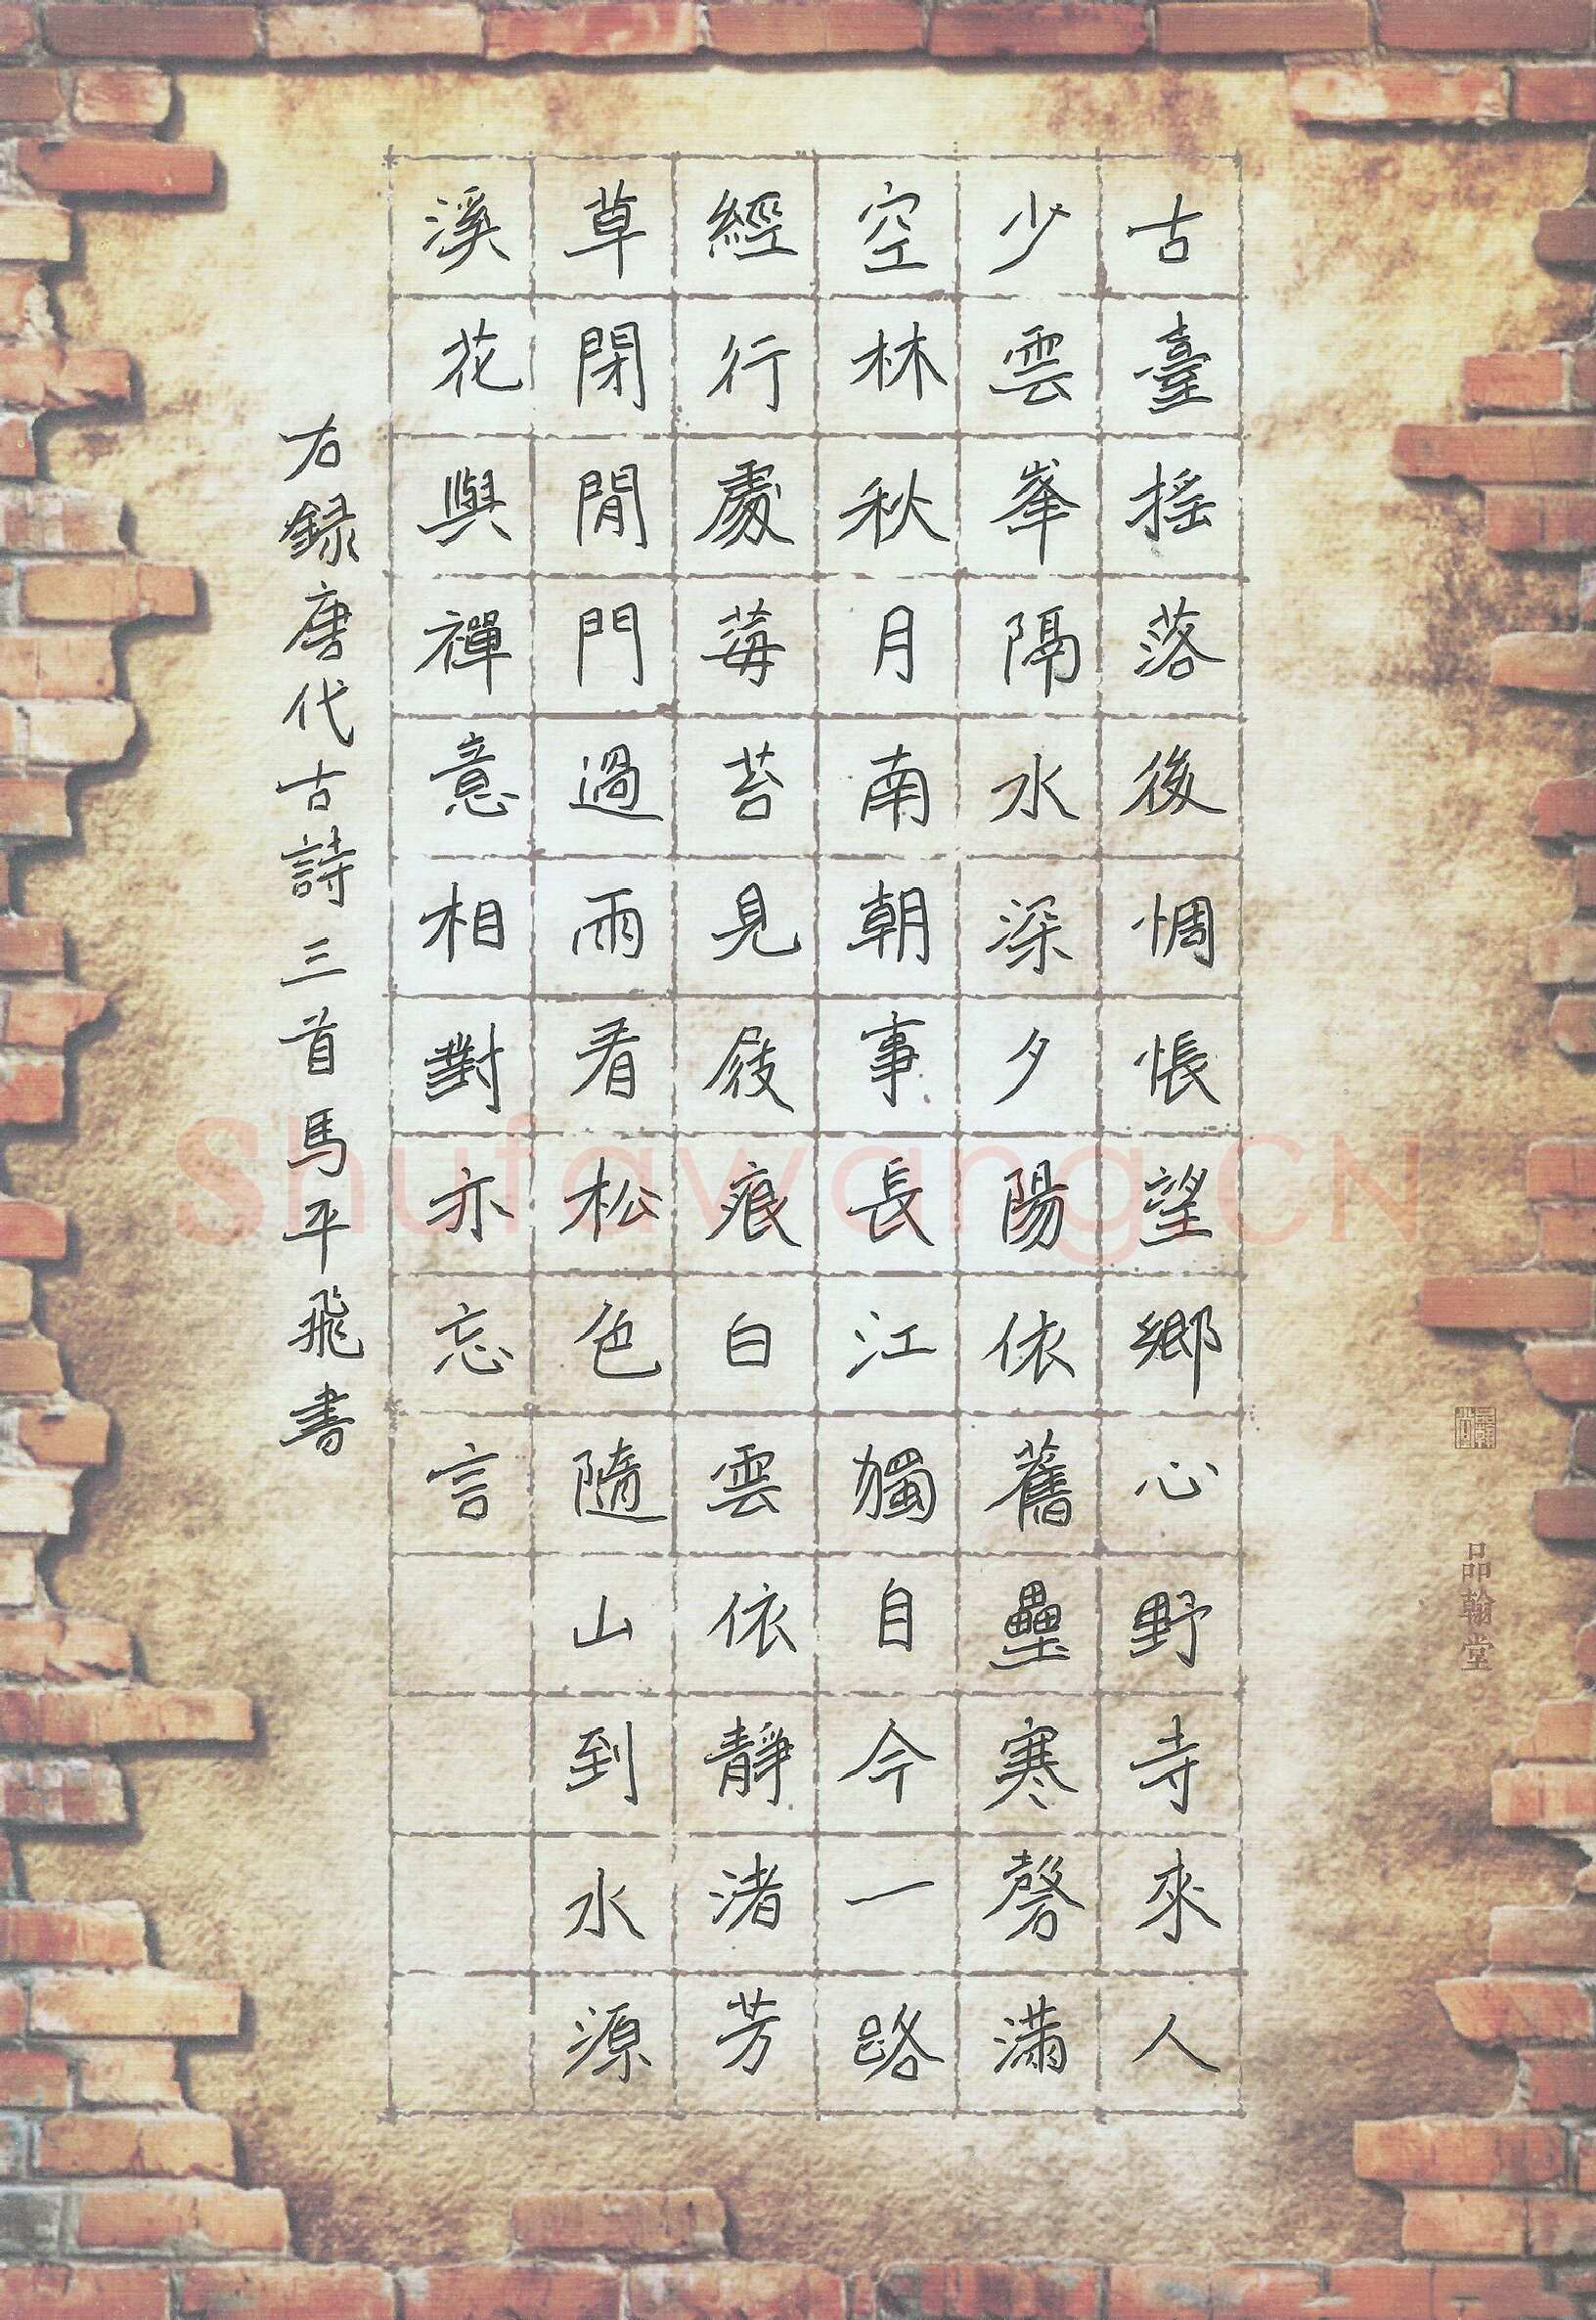 古臺摇落後惆悵望鄉心野寺來人
少雲峯隔水深夕陽依舊壘寒磬滿
空林秋月南朝事長江獨自今一路
經行處莓苔見屐痕白雲依靜渚芳
草閉閒門過雨看松色隨山到水源
溪花與禪意相對亦忘言
右録唐代古詩三首馬平飛書
品翰堂
Shufawang.CN